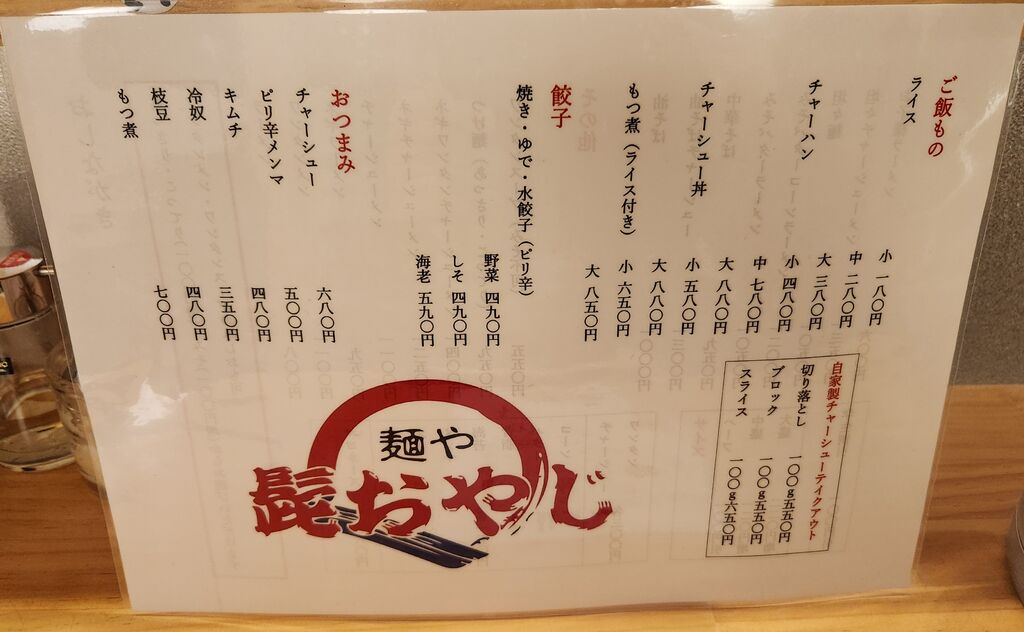 ご飯もの
ライス
小 一八〇円
中 二八〇円
大 三八〇円
チャーハン
小 四八〇円
中 七八〇円
大 八八〇円
チャーシュー丼
小 五八〇円
大 八八〇円
もつ煮（ライス付き）
小 六五〇円
大 八五〇円
餃子
焼き・ゆで・水餃子（ピリ辛）
野菜 四九〇円
しそ 四九〇円
海老 五九〇円
おつまみ
チャーシュー 六八〇円
ピリ辛メンマ 五〇〇円
キムチ 四八〇円
冷奴 三五〇円
枝豆 四八〇円
もつ煮 七〇〇円
自家製チャーシューテイクアウト
切り落とし 一〇〇g五五〇円
ブロック 一〇〇g五五〇円
スライス 一〇〇g六五〇円
麺や
髭おやじ